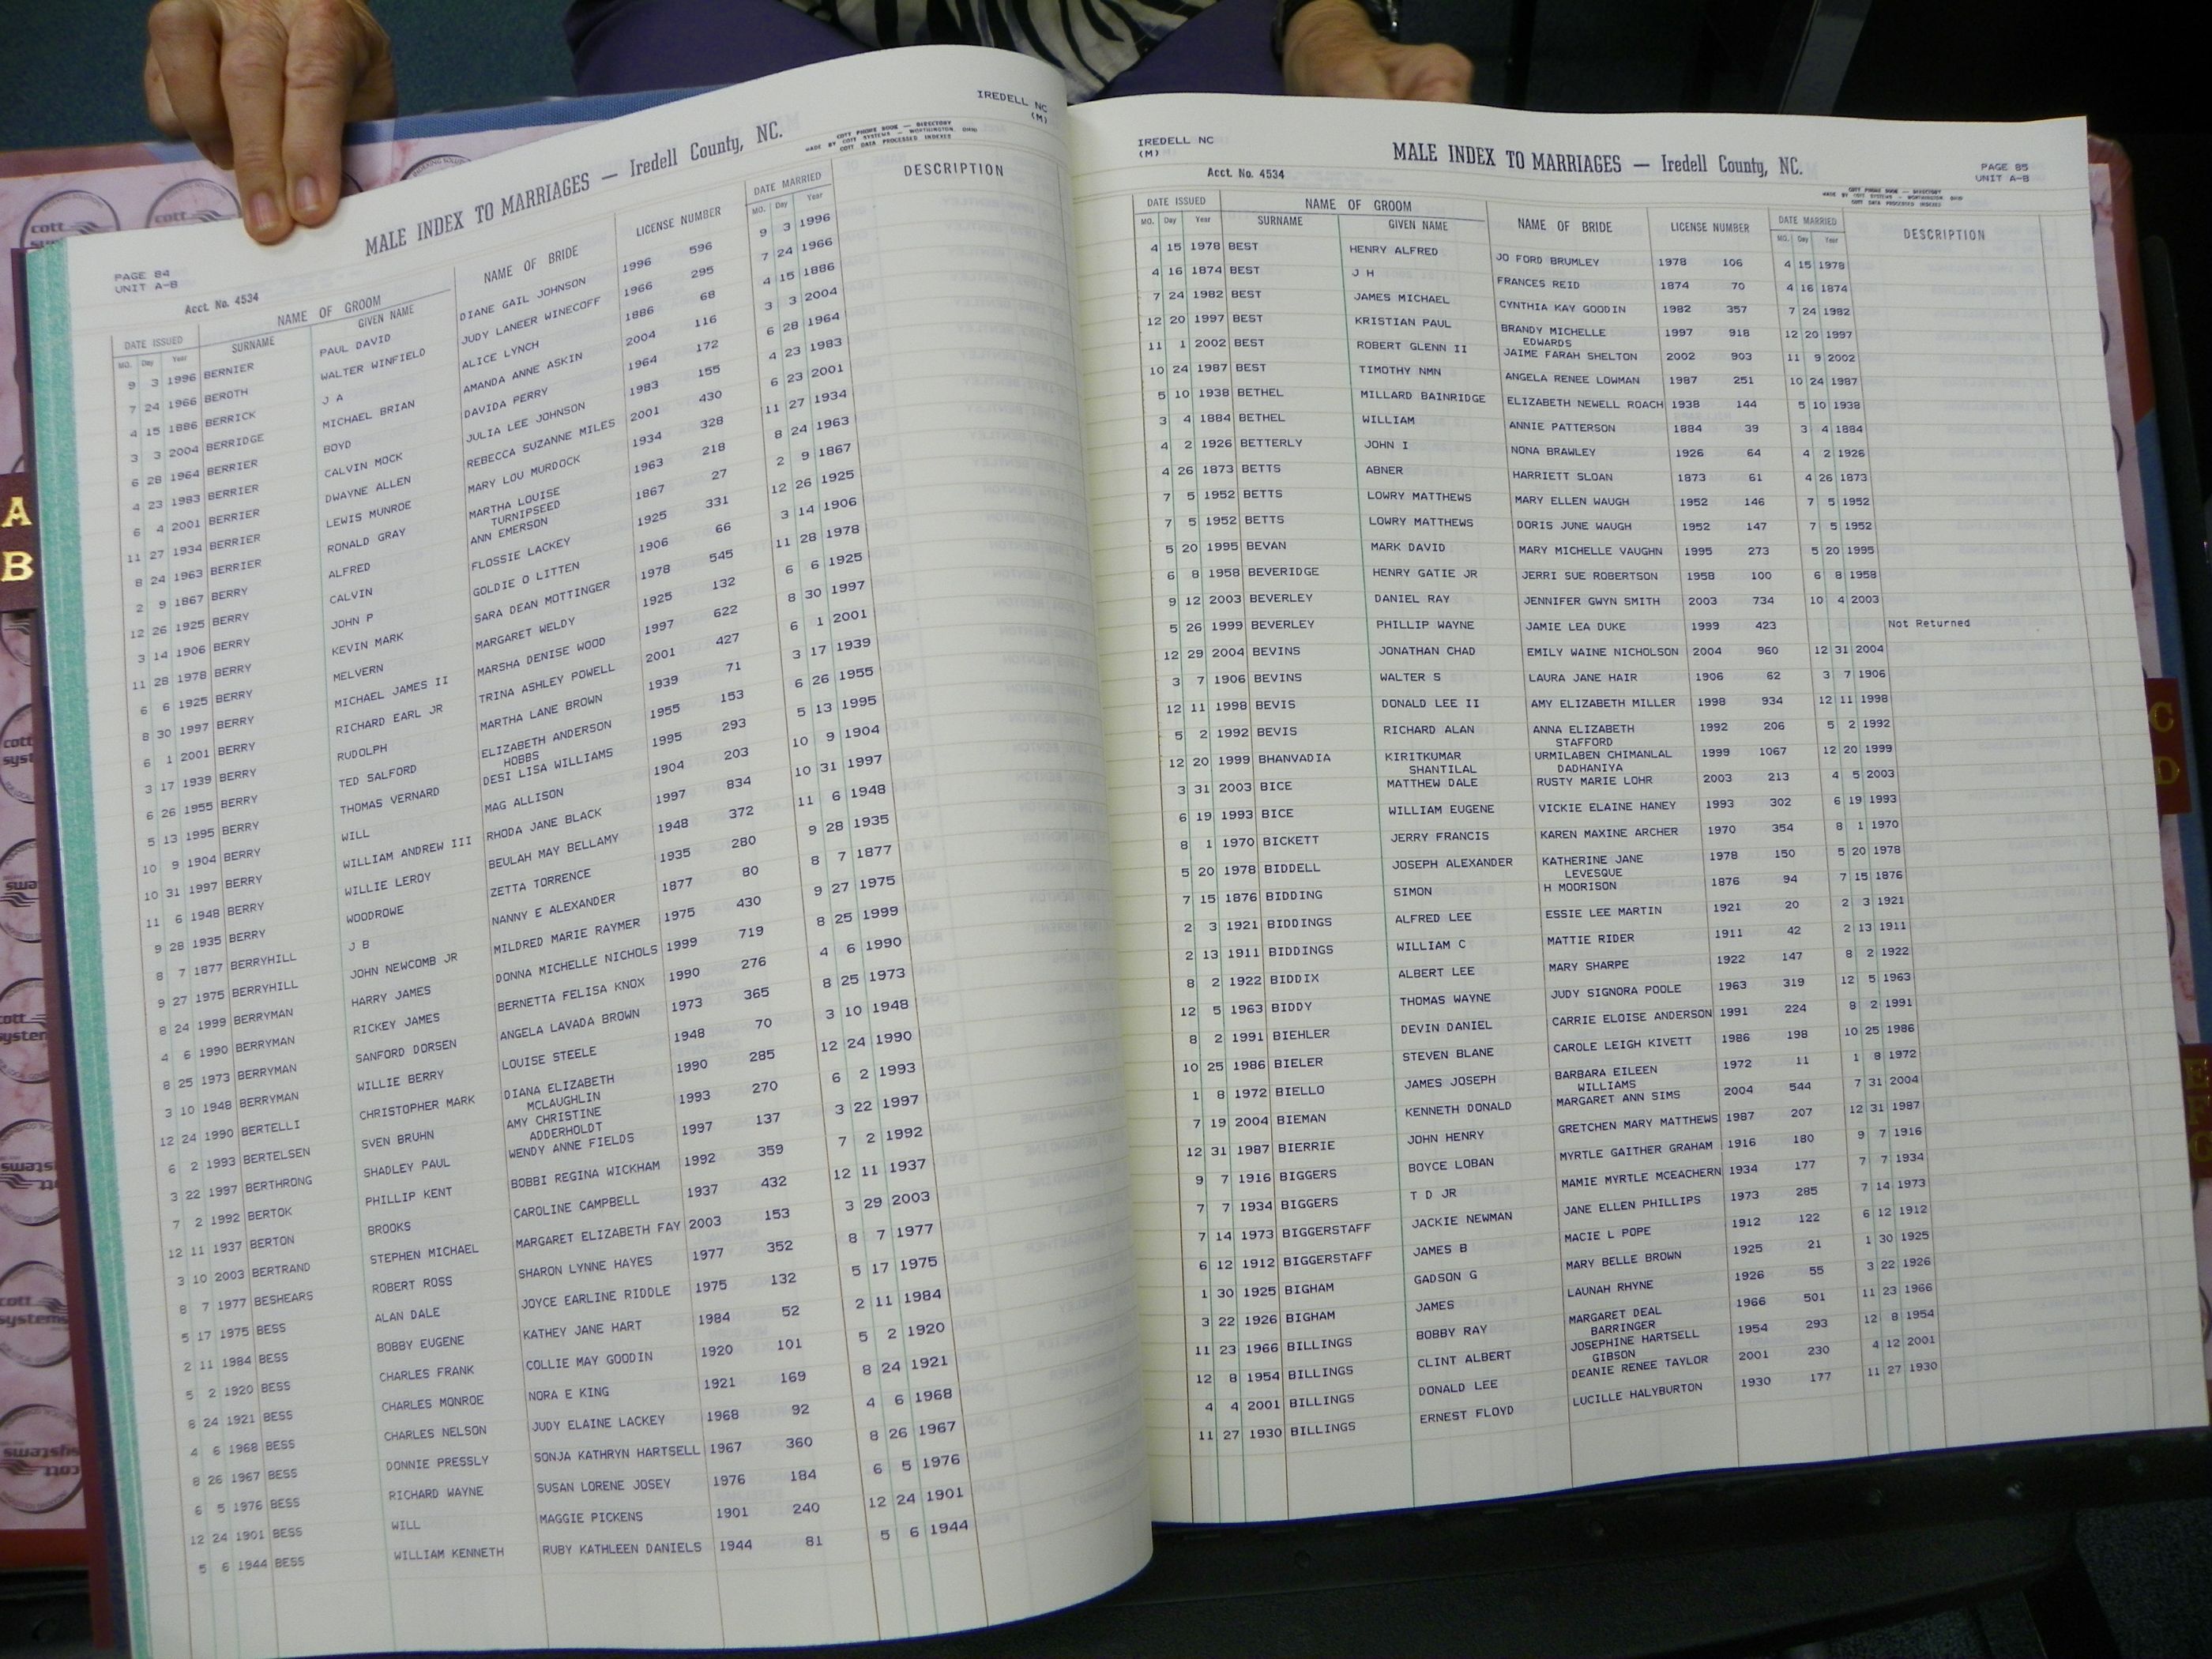 IREDELL NC
(M)
MALE INDEX TO MARRIAGES — Iredell County, NC.
COTT PHONE BOOK — DIRECTORY
MADE BY COTT SYSTEMS — WORTHINGTON, OHIO
COTT DATA PROCESSED INDEXES
PAGE 84
UNIT A-B
Acct. No. 4534
DATE ISSUED NAME OF GROOM NAME OF BRIDE LICENSE NUMBER DATE MARRIED DESCRIPTION
MO. Day Year SURNAME GIVEN NAME MO. Day Year
9 3 1996 BERNIER PAUL DAVID DIANE GAIL JOHNSON 1996 596 9 3 1996
7 24 1966 BEROTH WALTER WINFIELD JUDY LANEER WINECOFF 1966 295 7 24 1966
4 15 1886 BERRICK J A ALICE LYNCH 1886 68 4 15 1886
3 3 2004 BERRIDGE MICHAEL BRIAN AMANDA ANNE ASKIN 2004 116 3 3 2004
6 28 1964 BERRIER BOYD DAVIDA PERRY 1964 172 6 28 1964
4 23 1983 BERRIER CALVIN MOCK JULIA LEE JOHNSON 1983 155 4 23 1983
6 4 2001 BERRIER DWAYNE ALLEN REBECCA SUZANNE MILES 2001 430 6 23 2001
11 27 1934 BERRIER LEWIS MUNROE MARY LOU MURDOCK 1934 328 11 27 1934
8 24 1963 BERRIER RONALD GRAY MARTHA LOUISE 1963 218 8 24 1963
TURNIPSEED
2 9 1867 BERRY ALFRED ANN EMERSON 1867 27 2 9 1867
12 26 1925 BERRY CALVIN FLOSSIE LACKEY 1925 331 12 26 1925
3 14 1906 BERRY JOHN P GOLDIE O LITTEN 1906 66 3 14 1906
11 28 1978 BERRY KEVIN MARK SARA DEAN MOTTINGER 1978 545 11 28 1978
6 6 1925 BERRY MELVERN MARGARET WELDY 1925 132 6 6 1925
8 30 1997 BERRY MICHAEL JAMES II MARSHA DENISE WOOD 1997 622 8 30 1997
6 1 2001 BERRY RICHARD EARL JR TRINA ASHLEY POWELL 2001 427 6 1 2001
3 17 1939 BERRY RUDOLPH MARTHA LANE BROWN 1939 71 3 17 1939
6 26 1955 BERRY TED SALFORD ELIZABETH ANDERSON 1955 153 6 26 1955
HOBBS
5 13 1995 BERRY THOMAS VERNARD DESI LISA WILLIAMS 1995 293 5 13 1995
10 9 1904 BERRY WILL MAG ALLISON 1904 203 10 9 1904
10 31 1997 BERRY WILLIAM ANDREW III RHODA JANE BLACK 1997 834 10 31 1997
11 6 1948 BERRY WILLIE LEROY BEULAH MAY BELLAMY 1948 372 11 6 1948
9 28 1935 BERRY WOODROWE ZETTA TORRENCE 1935 280 9 28 1935
8 7 1877 BERRYHILL J B NANNY E ALEXANDER 1877 80 8 7 1877
9 27 1975 BERRYHILL JOHN NEWCOMB JR MILDRED MARIE RAYMER 1975 430 9 27 1975
8 24 1999 BERRYMAN HARRY JAMES DONNA MICHELLE NICHOLS 1999 719 8 25 1999
4 6 1990 BERRYMAN RICKEY JAMES BERNETTA FELISA KNOX 1990 276 4 6 1990
8 25 1973 BERRYMAN SANFORD DORSEN ANGELA LAVADA BROWN 1973 365 8 25 1973
3 10 1948 BERRYMAN WILLIE BERRY LOUISE STEELE 1948 70 3 10 1948
12 24 1990 BERTELLI CHRISTOPHER MARK DIANA ELIZABETH 1990 285 12 24 1990
MCLAUGHLIN
6 2 1993 BERTELSEN SVEN BRUHN AMY CHRISTINE 1993 270 6 2 1993
ADDERHOLDT
3 22 1997 BERTHRONG SHADLEY PAUL WENDY ANNE FIELDS 1997 137 3 22 1997
7 2 1992 BERTOK PHILLIP KENT BOBBI REGINA WICKHAM 1992 359 7 2 1992
12 11 1937 BERTON BROOKS CAROLINE CAMPBELL 1937 432 12 11 1937
3 10 2003 BERTRAND STEPHEN MICHAEL MARGARET ELIZABETH FAY 2003 153 3 29 2003
8 7 1977 BESHEARS ROBERT ROSS SHARON LYNNE HAYES 1977 352 8 7 1977
5 17 1975 BESS ALAN DALE JOYCE EARLINE RIDDLE 1975 132 5 17 1975
2 11 1984 BESS BOBBY EUGENE KATHEY JANE HART 1984 52 2 11 1984
5 2 1920 BESS CHARLES FRANK COLLIE MAY GOODIN 1920 101 5 2 1920
8 24 1921 BESS CHARLES MONROE NORA E KING 1921 169 8 24 1921
4 6 1968 BESS CHARLES NELSON JUDY ELAINE LACKEY 1968 92 4 6 1968
8 26 1967 BESS DONNIE PRESSLY SONJA KATHRYN HARTSELL 1967 360 8 26 1967
6 5 1976 BESS RICHARD WAYNE SUSAN LORENE JOSEY 1976 184 6 5 1976
12 24 1901 BESS WILL MAGGIE PICKENS 1901 240 12 24 1901
5 6 1944 BESS WILLIAM KENNETH RUBY KATHLEEN DANIELS 1944 81 5 6 1944
IREDELL NC
(M)
Acct. No. 4534
MALE INDEX TO MARRIAGES — Iredell County, NC.
PAGE 85
UNIT A-B
COTT PHONE BOOK — DIRECTORY
MADE BY COTT SYSTEMS — WORTHINGTON, OHIO
COTT DATA PROCESSED INDEXES
DATE ISSUED NAME OF GROOM NAME OF BRIDE LICENSE NUMBER DATE MARRIED DESCRIPTION
MO. Day Year SURNAME GIVEN NAME MO. Day Year
4 15 1978 BEST HENRY ALFRED JO FORD BRUMLEY 1978 106 4 15 1978
4 16 1874 BEST J H FRANCES REID 1874 70 4 16 1874
7 24 1982 BEST JAMES MICHAEL CYNTHIA KAY GOODIN 1982 357 7 24 1982
12 20 1997 BEST KRISTIAN PAUL BRANDY MICHELLE 1997 918 12 20 1997
EDWARDS
11 1 2002 BEST ROBERT GLENN II JAIME FARAH SHELTON 2002 903 11 9 2002
10 24 1987 BEST TIMOTHY NMN ANGELA RENEE LOWMAN 1987 251 10 24 1987
5 10 1938 BETHEL MILLARD BAINRIDGE ELIZABETH NEWELL ROACH 1938 144 5 10 1938
3 4 1884 BETHEL WILLIAM ANNIE PATTERSON 1884 39 3 4 1884
4 2 1926 BETTERLY JOHN I NONA BRAWLEY 1926 64 4 2 1926
4 26 1873 BETTS ABNER HARRIETT SLOAN 1873 61 4 26 1873
7 5 1952 BETTS LOWRY MATTHEWS MARY ELLEN WAUGH 1952 146 7 5 1952
7 5 1952 BETTS LOWRY MATTHEWS DORIS JUNE WAUGH 1952 147 7 5 1952
5 20 1995 BEVAN MARK DAVID MARY MICHELLE VAUGHN 1995 273 5 20 1995
6 8 1958 BEVERIDGE HENRY GATIE JR JERRI SUE ROBERTSON 1958 100 6 8 1958
9 12 2003 BEVERLEY DANIEL RAY JENNIFER GWYN SMITH 2003 734 10 4 2003
5 26 1999 BEVERLEY PHILLIP WAYNE JAMIE LEA DUKE 1999 423 Not Returned
12 29 2004 BEVINS JONATHAN CHAD EMILY WAINE NICHOLSON 2004 960 12 31 2004
3 7 1906 BEVINS WALTER S LAURA JANE HAIR 1906 62 3 7 1906
12 11 1998 BEVIS DONALD LEE II AMY ELIZABETH MILLER 1998 934 12 11 1998
5 2 1992 BEVIS RICHARD ALAN ANNA ELIZABETH 1992 206 5 2 1992
STAFFORD
12 20 1999 BHANVADIA KIRITKUMAR URMILABEN CHIMANLAL 1999 1067 12 20 1999
SHANTILAL DADHANIYA
3 31 2003 BICE MATTHEW DALE RUSTY MARIE LOHR 2003 213 4 5 2003
6 19 1993 BICE WILLIAM EUGENE VICKIE ELAINE HANEY 1993 302 6 19 1993
8 1 1970 BICKETT JERRY FRANCIS KAREN MAXINE ARCHER 1970 354 8 1 1970
5 20 1978 BIDDELL JOSEPH ALEXANDER KATHERINE JANE 1978 150 5 20 1978
LEVESQUE
7 15 1876 BIDDING SIMON H MOORISON 1876 94 7 15 1876
2 3 1921 BIDDINGS ALFRED LEE ESSIE LEE MARTIN 1921 20 2 3 1921
2 13 1911 BIDDINGS WILLIAM C MATTIE RIDER 1911 42 2 13 1911
8 2 1922 BIDDIX ALBERT LEE MARY SHARPE 1922 147 8 2 1922
12 5 1963 BIDDY THOMAS WAYNE JUDY SIGNORA POOLE 1963 319 12 5 1963
8 2 1991 BIEHLER DEVIN DANIEL CARRIE ELOISE ANDERSON 1991 224 8 2 1991
10 25 1986 BIELER STEVEN BLANE CAROLE LEIGH KIVETT 1986 198 10 25 1986
1 8 1972 BIELLO JAMES JOSEPH BARBARA EILEEN 1972 11 1 8 1972
WILLIAMS
7 19 2004 BIEMAN KENNETH DONALD MARGARET ANN SIMS 2004 544 7 31 2004
12 31 1987 BIERRIE JOHN HENRY GRETCHEN MARY MATTHEWS 1987 207 12 31 1987
9 7 1916 BIGGERS BOYCE LOBAN MYRTLE GAITHER GRAHAM 1916 180 9 7 1916
7 7 1934 BIGGERS T D JR MAMIE MYRTLE MCEACHERN 1934 177 7 7 1934
7 14 1973 BIGGERSTAFF JACKIE NEWMAN JANE ELLEN PHILLIPS 1973 285 7 14 1973
6 12 1912 BIGGERSTAFF JAMES B MACIE L POPE 1912 122 6 12 1912
1 30 1925 BIGHAM GADSON G MARY BELLE BROWN 1925 21 1 30 1925
3 22 1926 BIGHAM JAMES LAUNAH RHYNE 1926 55 3 22 1926
11 23 1966 BILLINGS BOBBY RAY MARGARET DEAL 1966 501 11 23 1966
BARRINGER
12 8 1954 BILLINGS CLINT ALBERT JOSEPHINE HARTSELL 1954 293 12 8 1954
GIBSON
4 4 2001 BILLINGS DONALD LEE DEANIE RENEE TAYLOR 2001 230 4 12 2001
11 27 1930 BILLINGS ERNEST FLOYD LUCILLE HALYBURTON 1930 177 11 27 1930
A
B
C
D
cott
systems